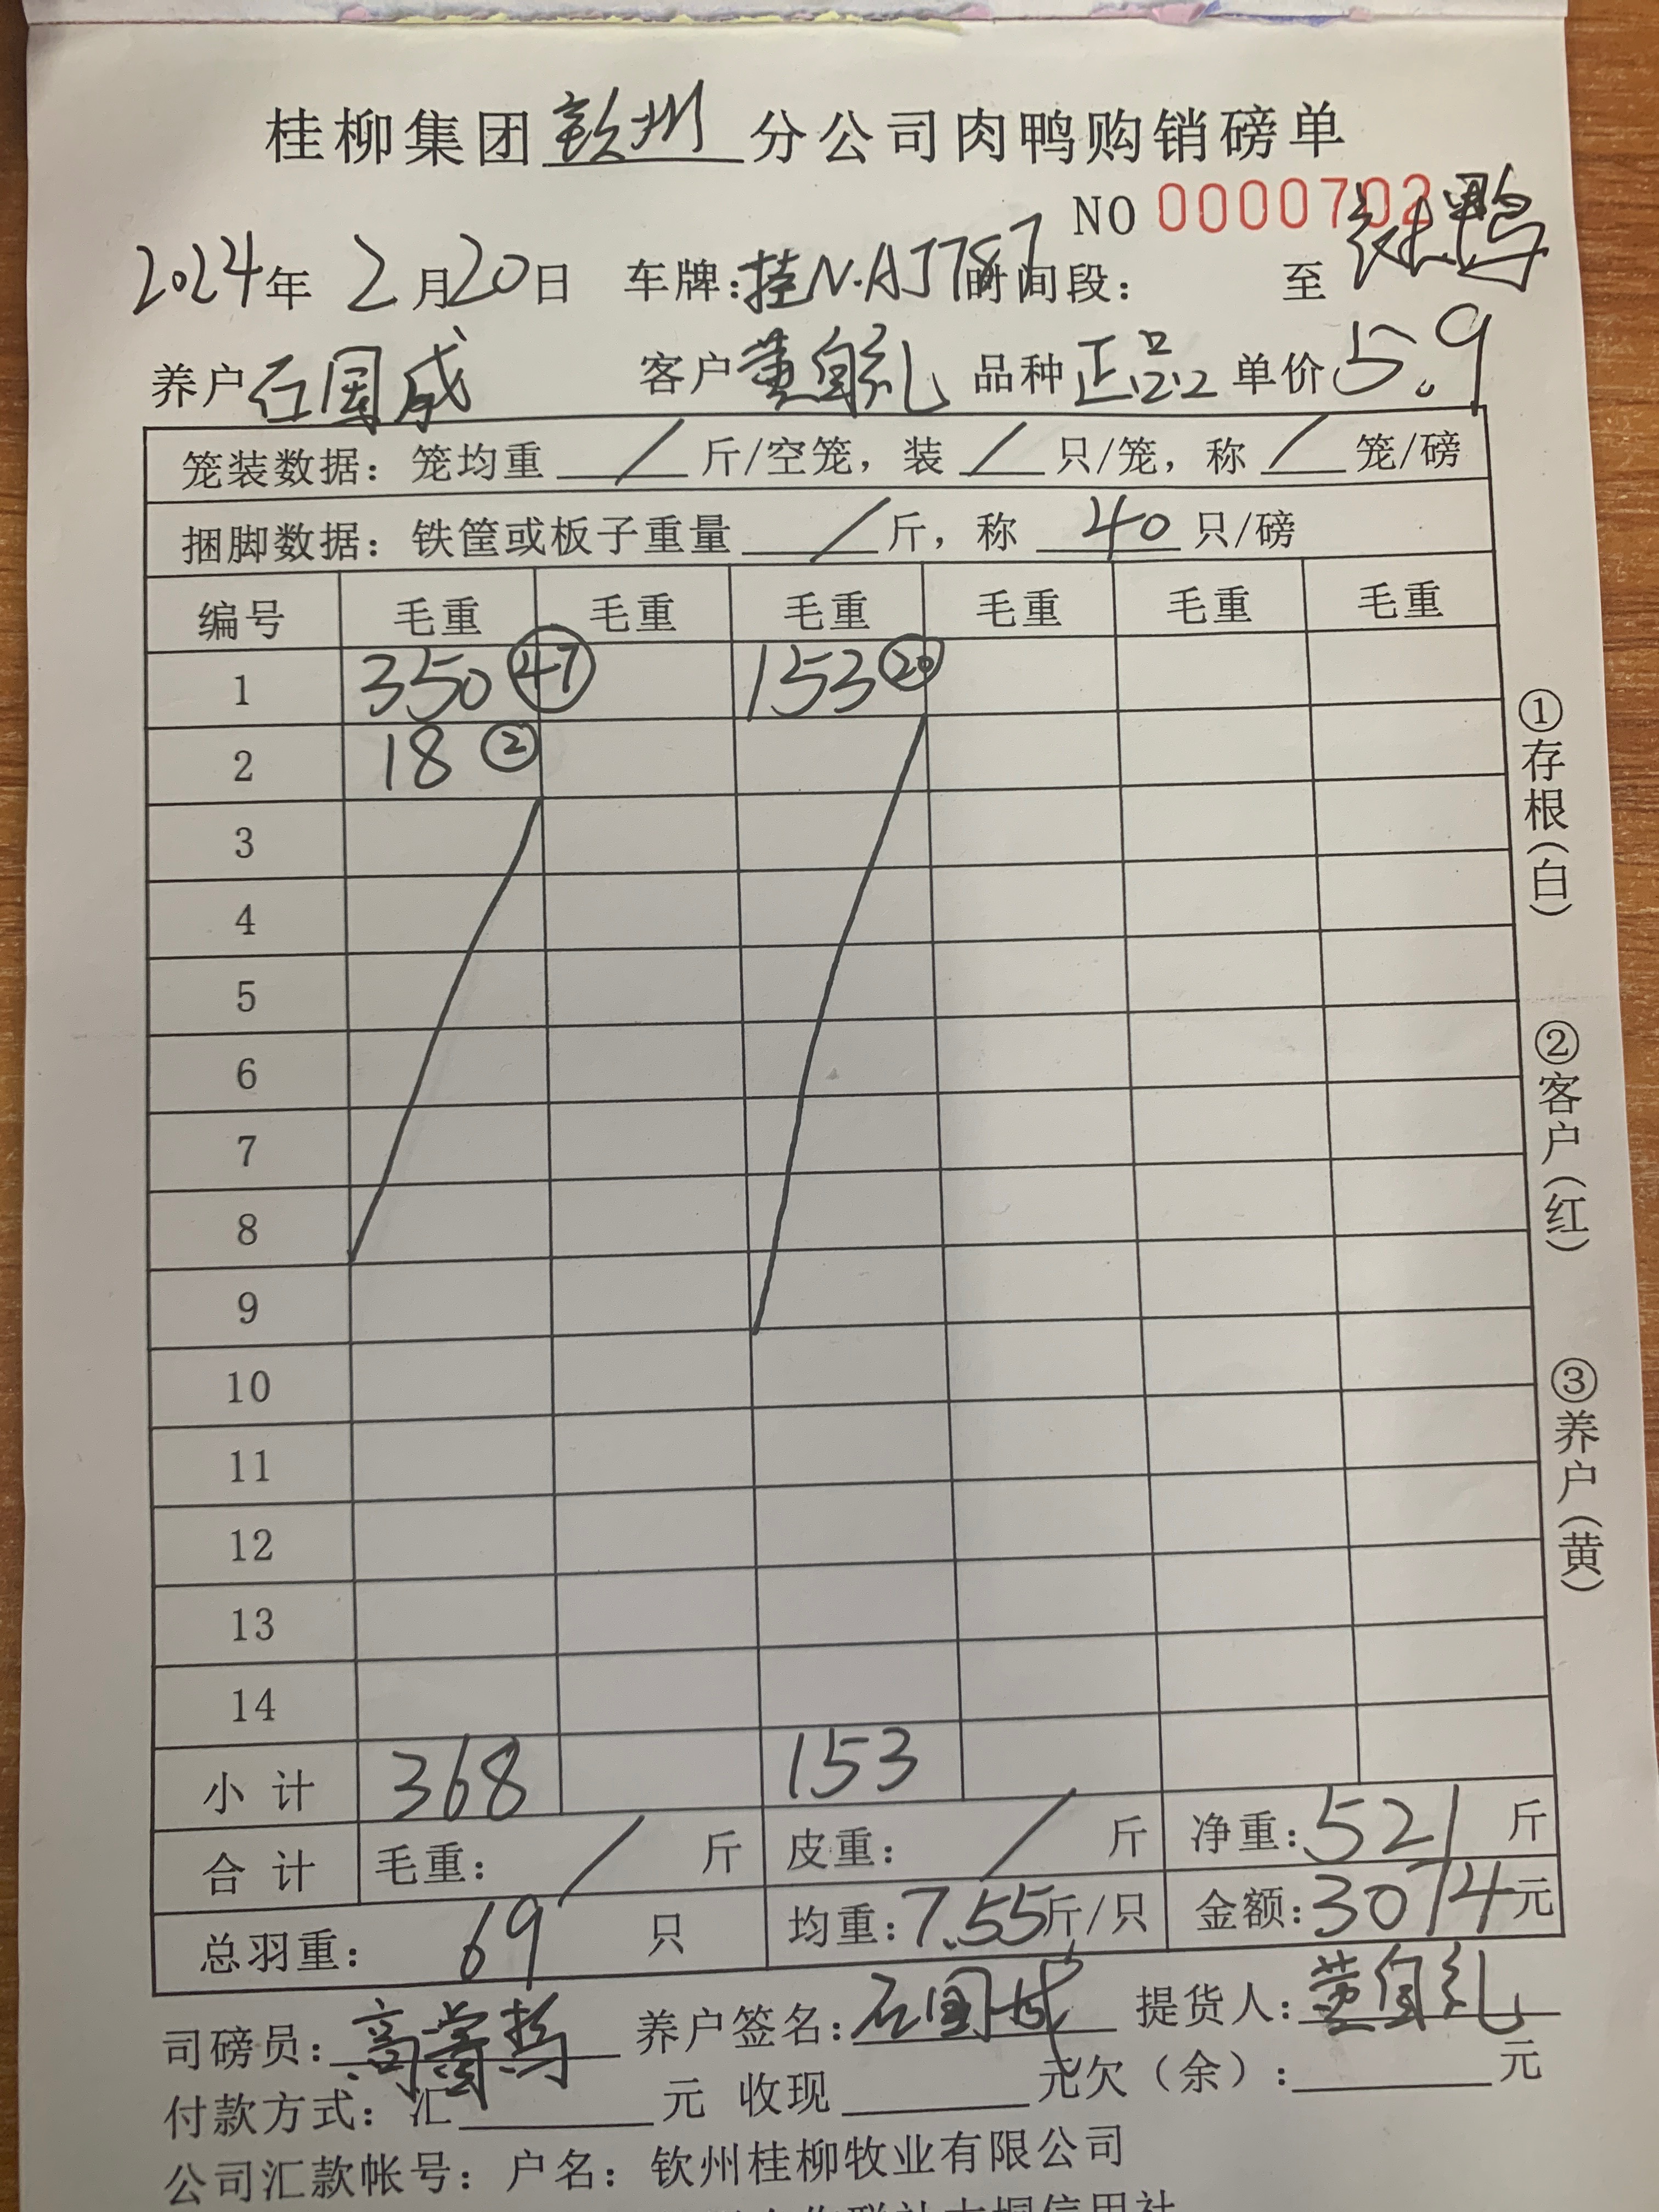 桂柳集团钦州分公司肉鸭购销磅单
NO 0000702
2024年 2月20日 车牌:桂N.AJ787 时间段: 至 红鸭
养户石国成 客户黄自礼 品种正品 单价5.9
笼装数据: 笼均重 / 斤/空笼, 装 / 只/笼, 称 / 笼/磅
捆脚数据: 铁筐或板子重量 / 斤, 称 40 只/磅
编号 毛重 毛重 毛重 毛重 毛重 毛重
1 350 ㊼ 153 ⑳
2 18 ②
3
4
5
6
7
8
9
10
11
12
13
14
小计 368 153
合计 毛重: / 斤 皮重: / 斤 净重:521 斤
总羽重: 69 只 均重:7.55斤/只 金额:3074元
司磅员: 养户签名:石国成 提货人:黄自礼
付款方式: 汇 元 收现 元欠(余): 元
公司汇款帐号: 户名: 钦州桂柳牧业有限公司
①存根(白)
②客户(红)
③养户(黄)